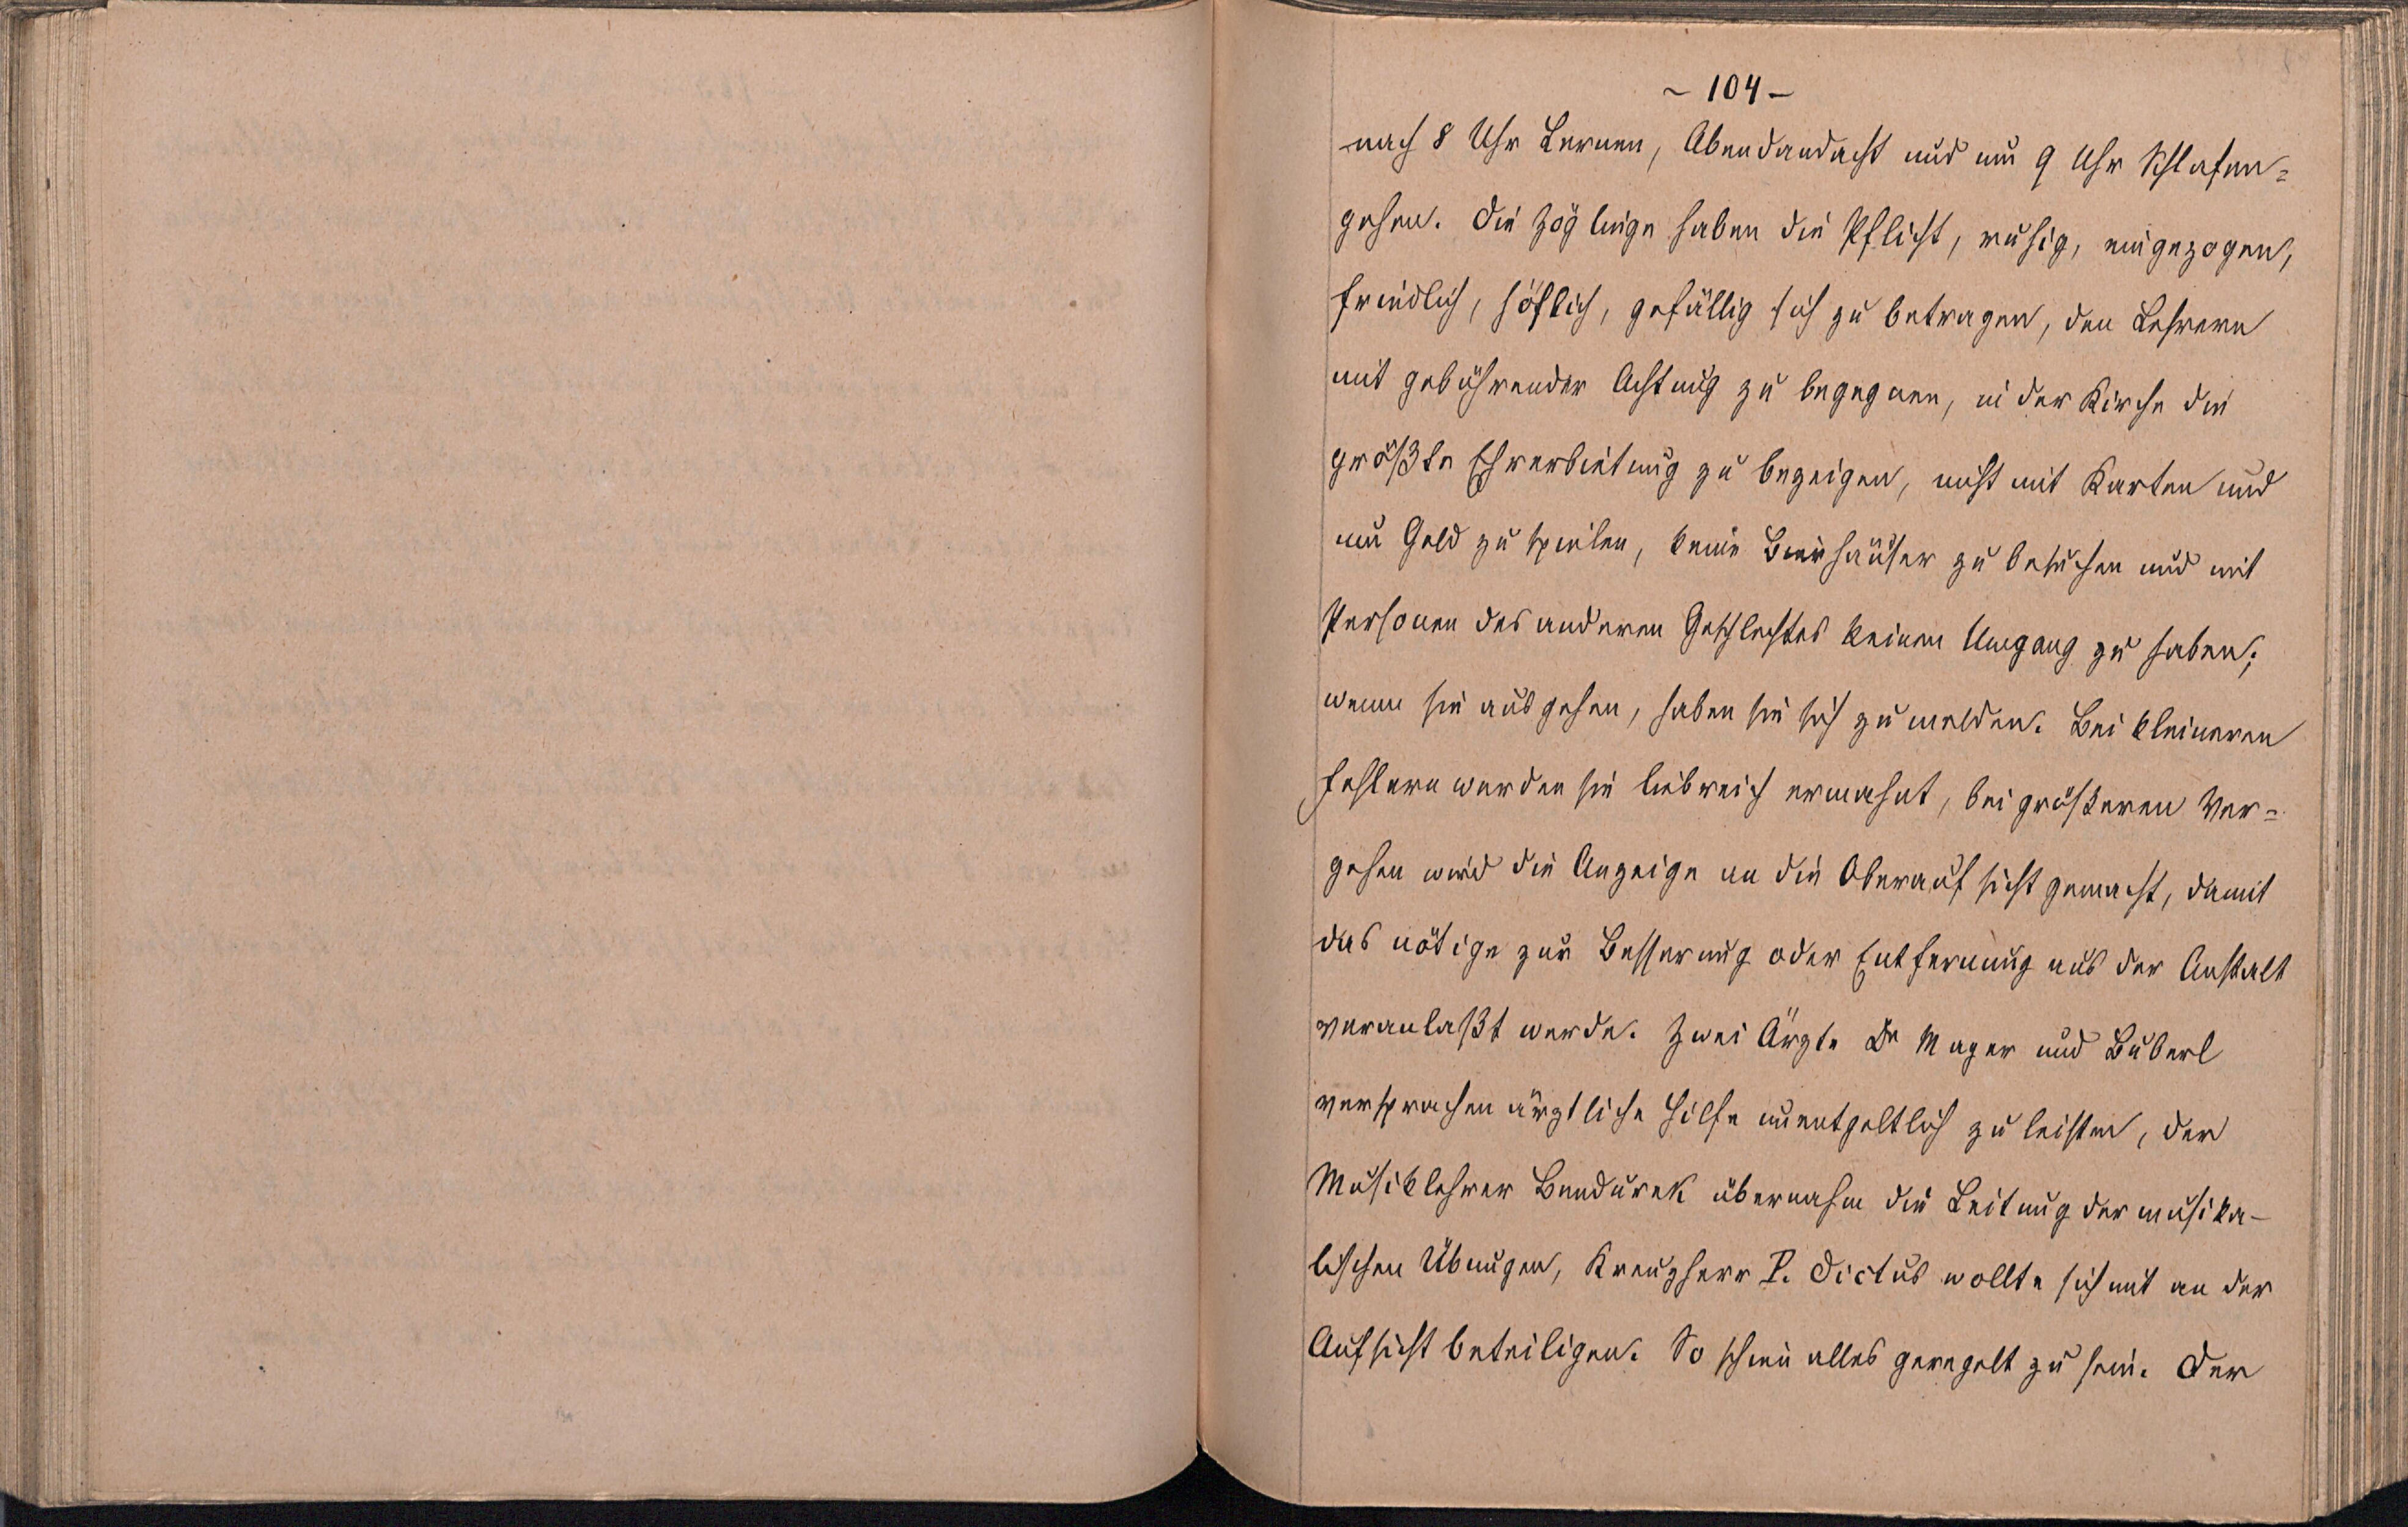 ~ 104 –
nach 8 Uhr Lernen, Abendandacht und um 9 Uhr Schlafen=
gehen. Die Zöglinge haben die Pflicht, ruhig, eingezogen,
friedlich, höflich, gefällig sich zu betragen, den Lehrern
mit gebührender Achtung zu begegnen, in der Kirche die
größte Ehrerbietung zu bezeigen, nicht mit Karten und
um Geld zu spielen, keine Bierhäuser zu besuchen und mit
Personen des anderen Geschlechtes keinen Umgang zu haben;
wenn sie ausgehen, haben sie sich zu melden. Bei kleineren
Fehlern werden sie liebreich ermahnt, bei größeren Ver=
gehen wird die Anzeige an die Oberaufsicht gemacht, damit
das nötige zur Besserung oder Entfernung aus der Anstalt
veranlaßt werde. Zwei Ärzte Dr Mayer und Buberl
versprachen ärztliche Hilfe unentgeltlich zu leisten, der
Musiklehrer Bendurek übernahm die Leitung der musika-
lischen Übungen, Kreuzherr P. Dictus wollte sich mit an der
Aufsicht beteiligen. So schien alles geregelt zu sein. Der